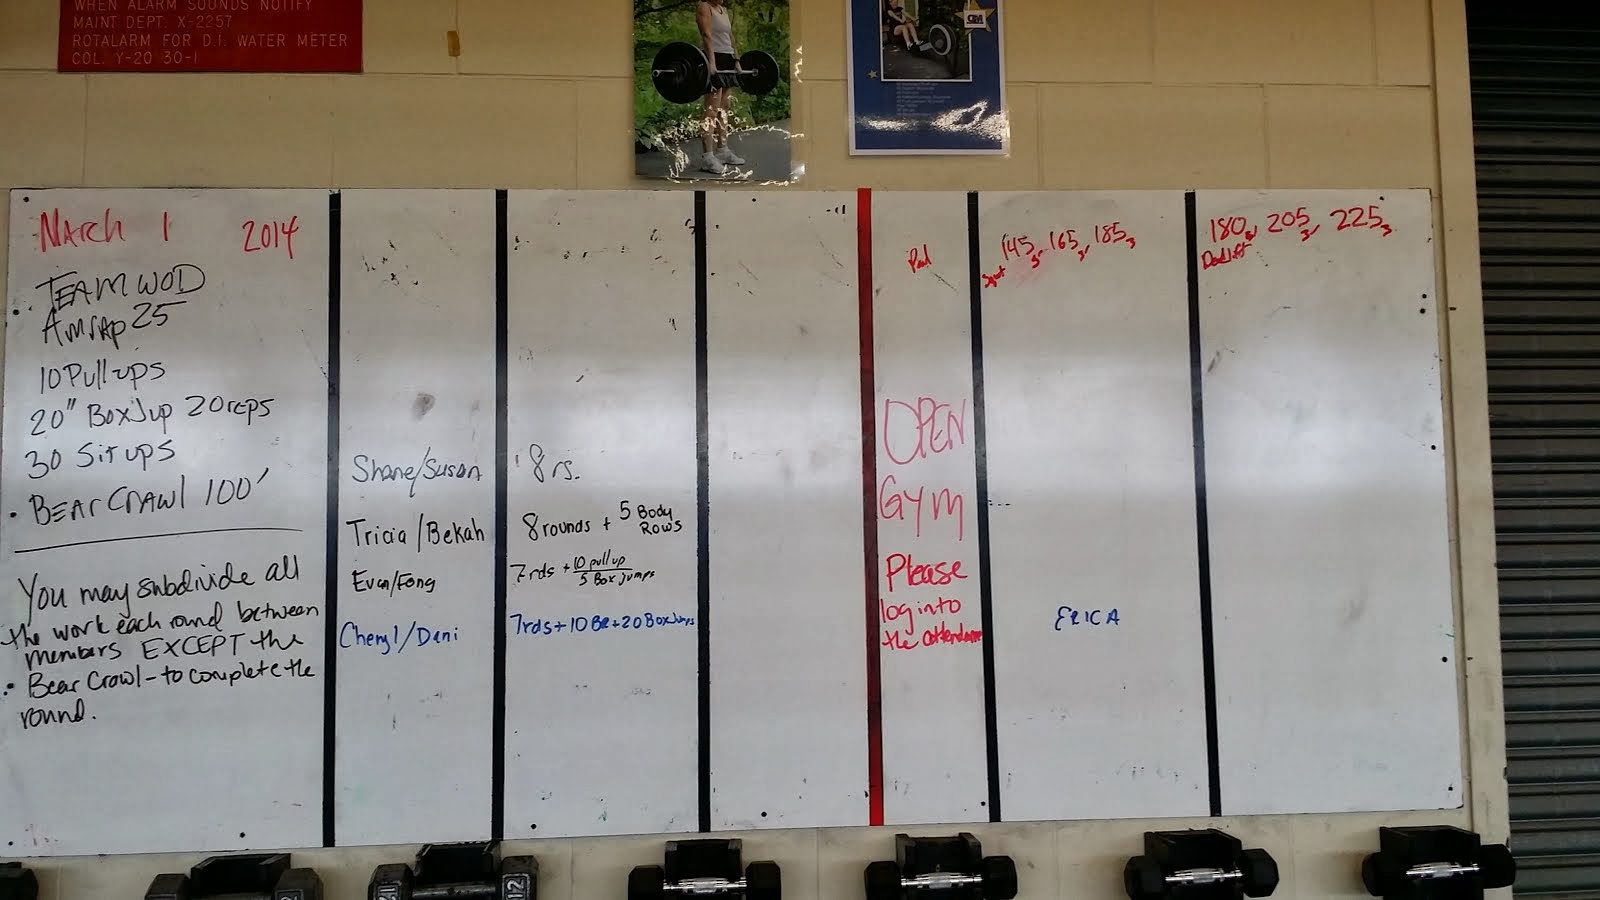 WHEN ALARM SOUNDS NOTIFY
MAINT DEPT. X-2257
ROTALARM FOR D.I. WATER METER
COL. Y-20 30-1
March 1 2014
TEAM WOD
Amrap 25
10 Pull-ups
20" Box Jup 20 reps
30 Sit ups
• BEAR CRAWL 100'
You may subdivide all
the work each round between
members EXCEPT the
• Bear Crawl - to complete the
round.
Shane/Susan 8 rs.
Tricia/Bekah 8 rounds + 5 Body Rows
Evan/Fong 7rds + 10 pull up
5 Box jumps
Cheryl/Dani 7rds + 10 BR + 20 Box Jumps
Paul
Squt 145 3, 165 3, 185 3
Deadlift 180 3, 205 3, 225 3
OPEN
GYM
Please
log into
the attendance
ERICA
12